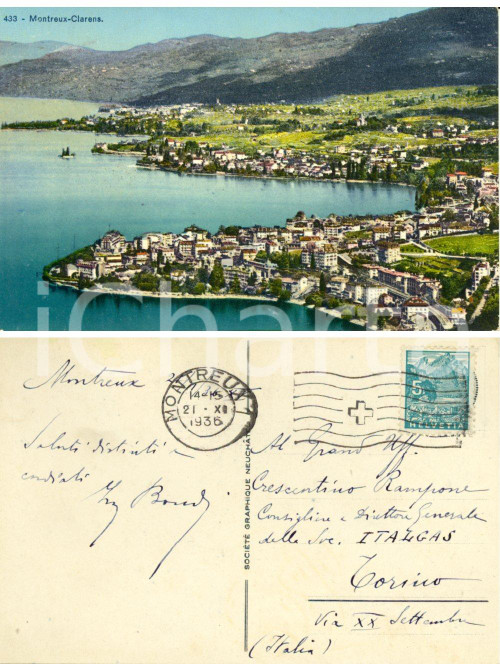 433 - Montreux-Clarens.
iCharta
Montreux
MONTREUX
14-15
21·XII
1935
5
HELVETIA
Saluti distinti e
cordiali
Ing
SOCIÉTÉ GRAPHIQUE NEUCHÂTEL
Al Grand Uff.
Crescentino Rampone
Consigliere e Direttore Generale
della Soc. ITALGAS
Torino
Via XX Settembre
(Italia)